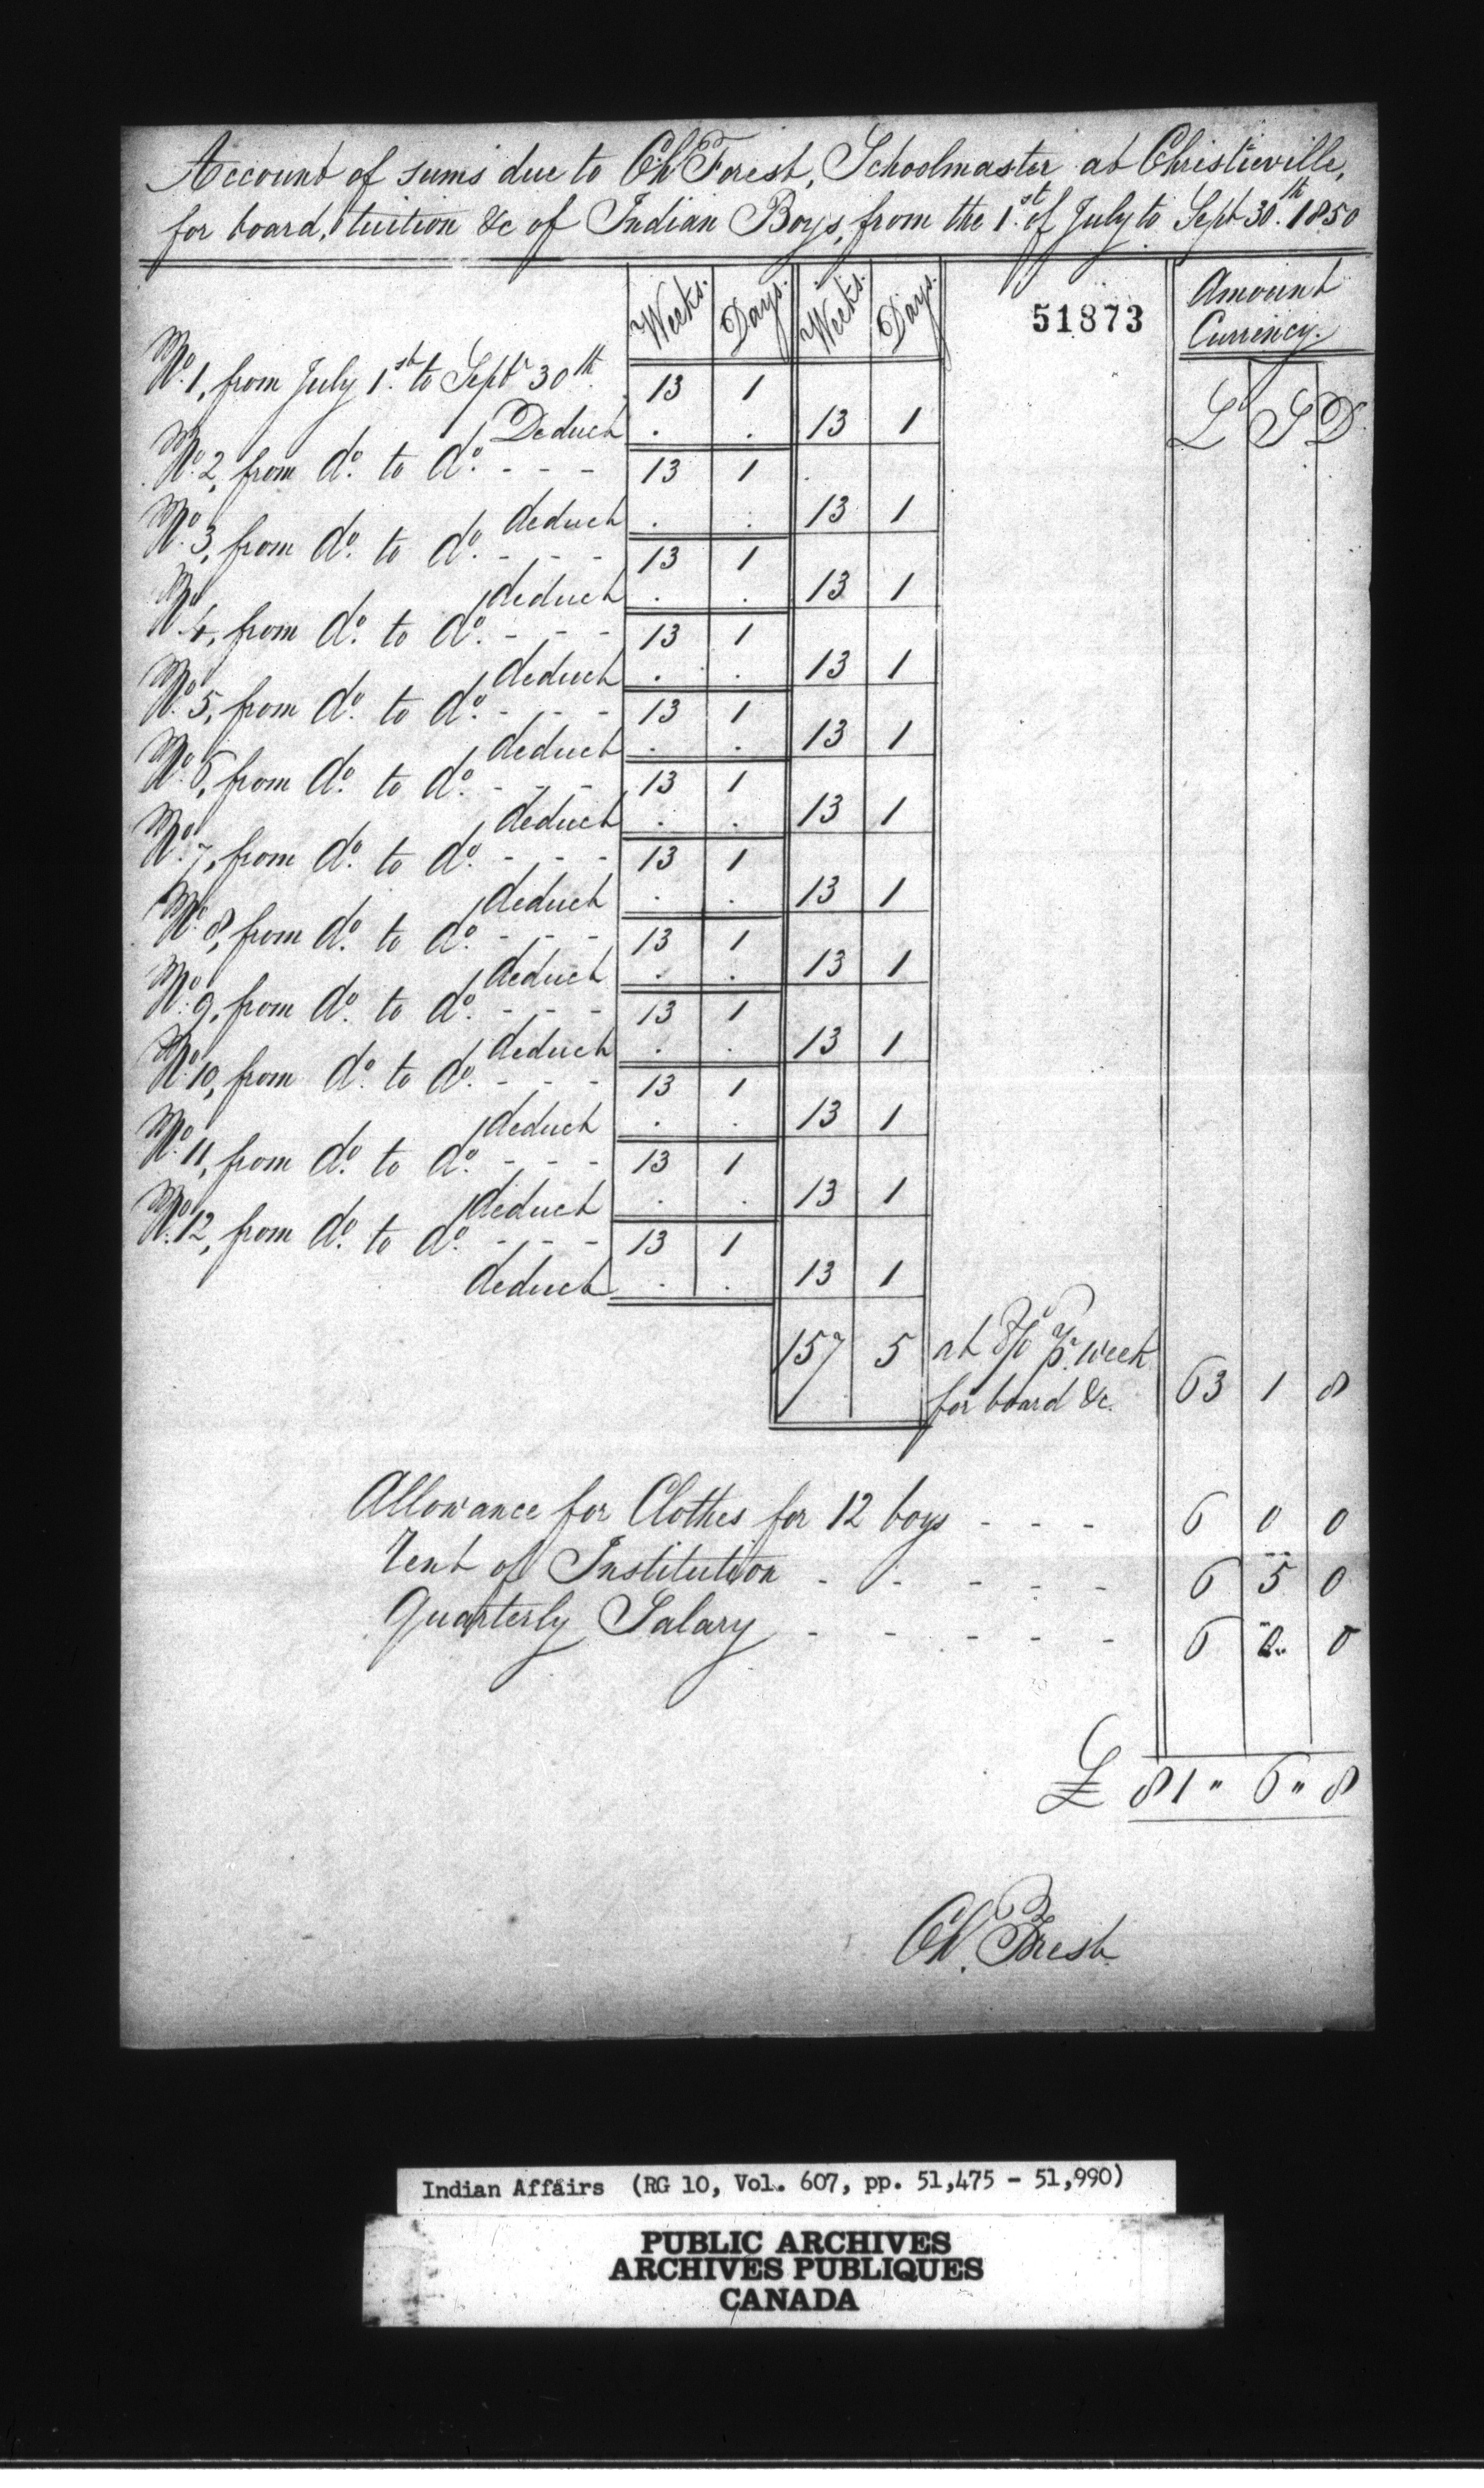 Account of sums due to Ch Forest, Schoolmaster at Christieville,
for board, tuition &c of Indian Boys, from the 1st of July to Sept 30th 1850
Weeks. Days. Weeks. Days. 51873 Amount
Currency.
£ S D
No 1, from July 1st to Septr 30th 13 1
Deduct . . 13 1
No 2, from do. to do. - - - 13 1
deduct . . 13 1
No 3, from do. to do. - - - 13 1
deduct . . 13 1
No 4, from do. to do. - - - 13 1
deduct . . 13 1
No 5, from do. to do. - - - 13 1
deduct . . 13 1
No 6, from do. to do. - - - 13 1
deduct . . 13 1
No 7, from do. to do. - - - 13 1
deduct . . 13 1
No 8, from do. to do. - - - 13 1
deduct . . 13 1
No 9, from do. to do. - - - 13 1
deduct . . 13 1
No 10, from do. to do. - - - 13 1
deduct . . 13 1
No 11, from do. to do. - - - 13 1
deduct . . 13 1
No 12, from do. to do. - - - 13 1
deduct . . 13 1
157 5 at 8/0 pr. week
for board &c. 63 1 8
Allowance for Clothes for 12 boys - - - 6 0 0
Rent of Institution - - - - - 6 5 0
Quarterly Salary - - - - - 6 0 0
£ 81 " 6 " 8
Ch. Forest
Indian Affairs (RG 10, Vol. 607, pp. 51,475 - 51,990)
PUBLIC ARCHIVES
ARCHIVES PUBLIQUES
CANADA